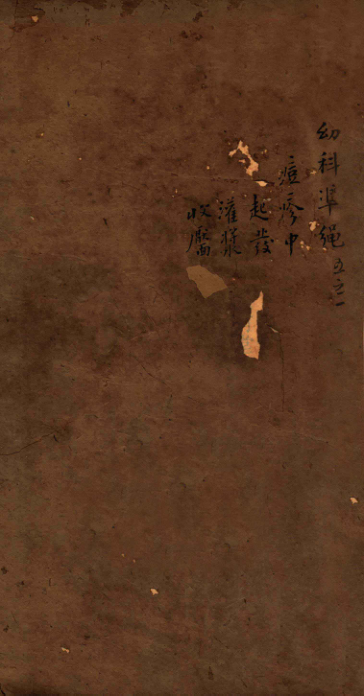 幼科準繩五之一
痘疹中
起發
灌漿
收靨